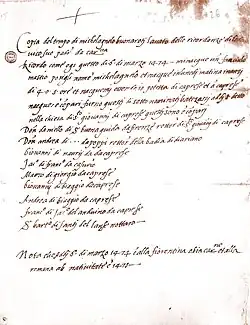 Copia del tempo di michelagnolo buonaroti levato dalle ricordanze di lodo
vico suo padre da
Ricordo come oggi questo dì 6 di marzo 1474 mi nacque un fanciullo
mastio posigli nome michelagnolo et nacque inanzi matina
di 4 o 5 ore et nacquemi essendo io potestà di caprese et a caprese
nacque e conpari furno questi di sotto nominati batezossi addì 8 detto
nella chiesa di Sto giovanni di caprese questi sono e conpari
Don daniello di Ser buona guida da firenze rettore di Sto giovanni di caprese
Don andrea di poppi rettore della badia di
Giovanni di nannj da caprese
Jaco di franco da
Marco di giorgio da caprese
Giovannj di biagio da caprese
Andrea di biagio da caprese
Franco di Jaco del anduino da caprese
S Barto di Santj del lanse nottaro
Nota che addj 6 di marzo 1474 è alla fiorentina ab incarnatione et alla
romana ab nativitate è 1475